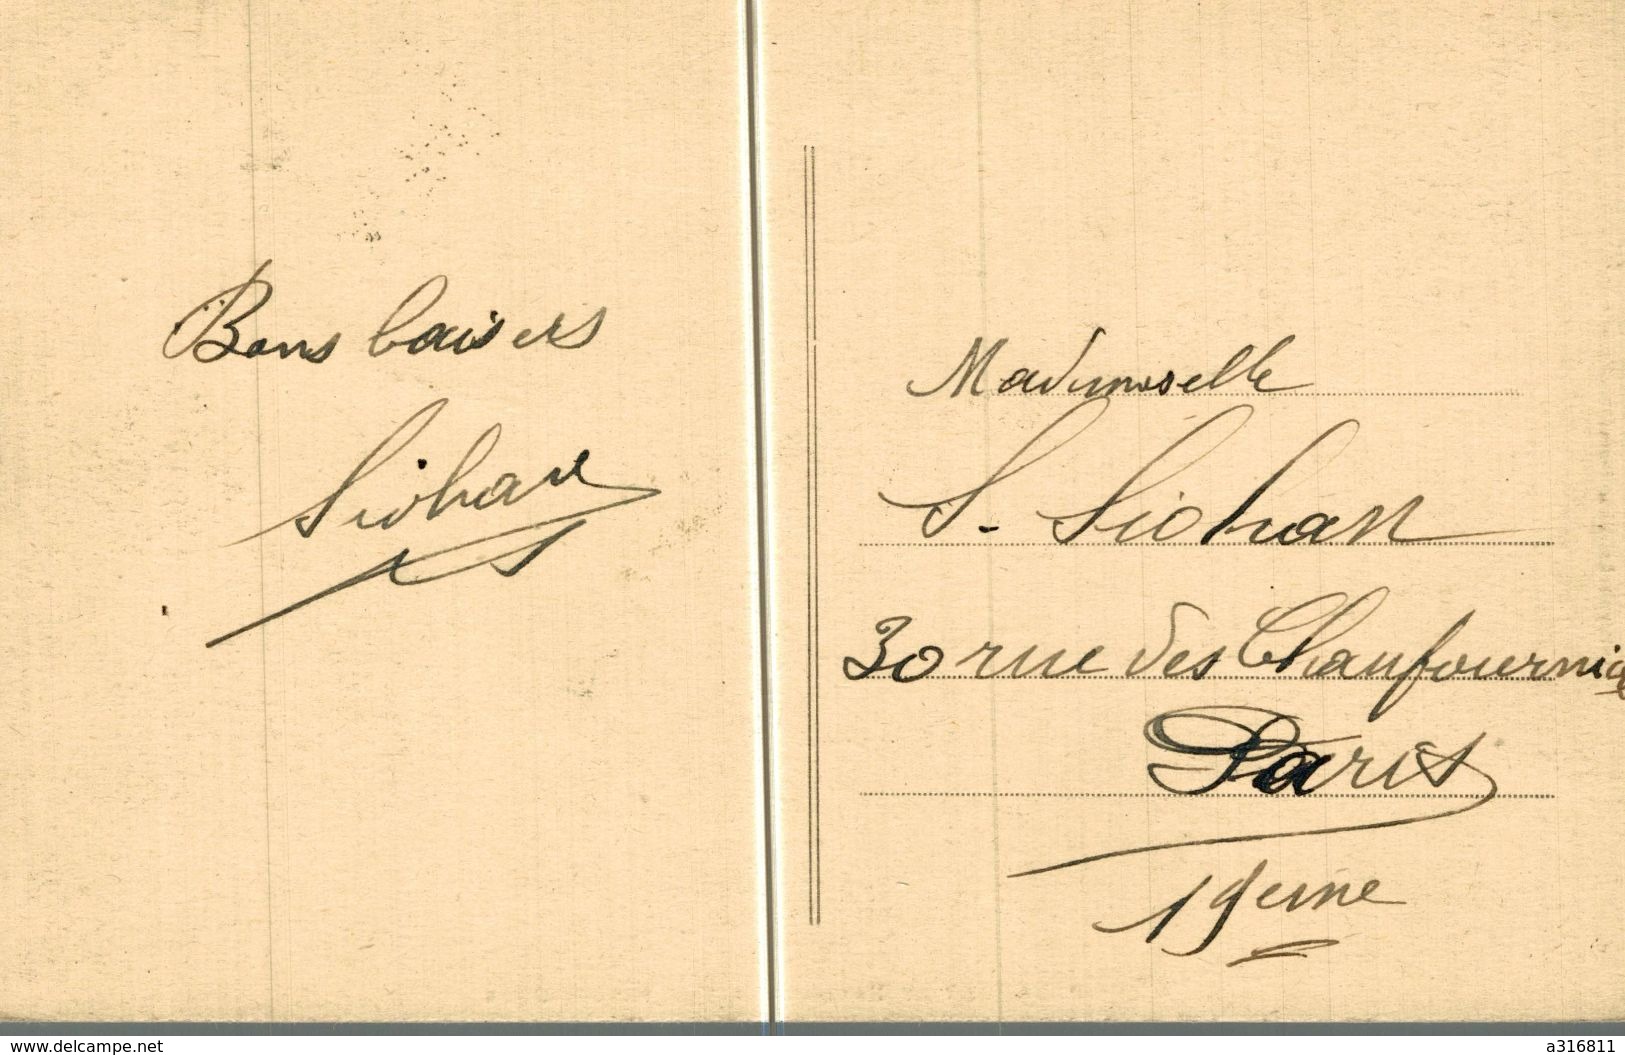 Bons baisers
Siohan
Mademoiselle
S. Siohan
30 rue des Chaufournie
Paris
19eme
www.delcampe.net
a316811